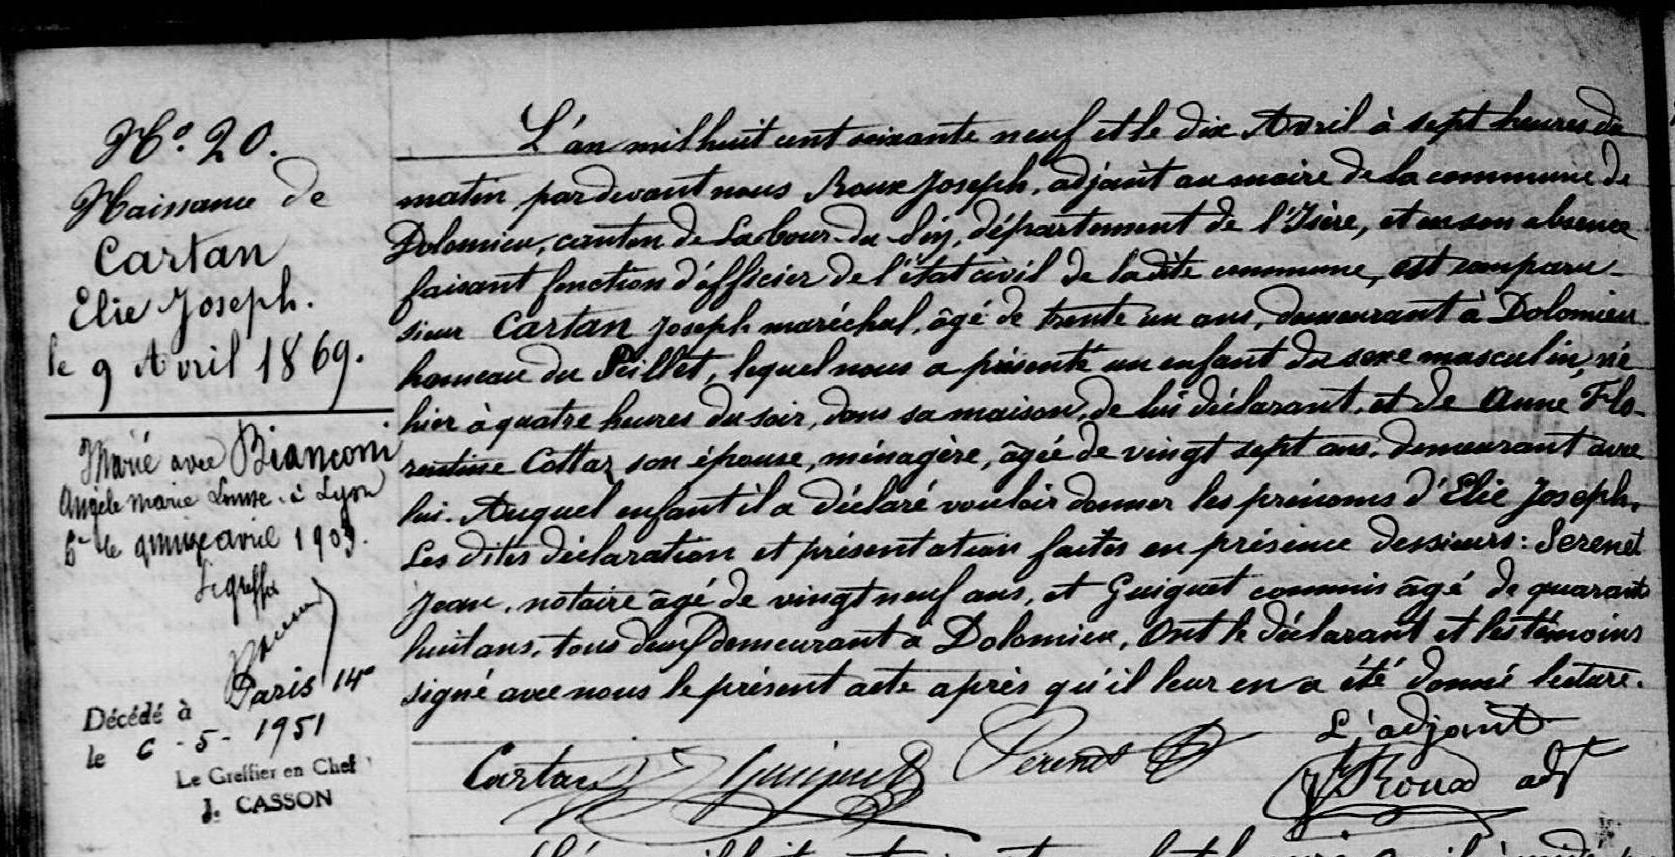 N° 20.
Naissance de
Cartan
Elie Joseph.
le 9 Avril 1869.
Marié avec Bianconi
Angèle Marie Louise à Lyon
6e le quinze avril 1903.
Le greffier
Décédé à Paris 14e
le 6 - 5 - 1951
Le Greffier en Chef
J. CASSON
L'an mil huit cent soixante neuf et le dix Avril à sept heures du
matin, pardevant nous Roux Joseph, adjoint au maire de la commune de
Dolomieu, canton de Latour-du-Pin, département de l'Isère, et en son absence
faisant fonction d'officier de l'état civil de la dite commune, est comparu
sieur Cartan Joseph maréchal, âgé de trente un ans, demeurant à Dolomieu
hameau du Peillet, lequel nous a présenté un enfant du sexe masculin, né
hier à quatre heures du soir, dans sa maison, de lui déclarant, et de Anne Flo-
rentine Cottaz son épouse, ménagère, âgée de vingt sept ans, demeurant avec
lui. Auquel enfant il a déclaré vouloir donner les prénoms d'Elie Joseph.
Les dites déclaration et présentation faites en présence des sieurs: Serenet
Jean, notaire âgé de vingt neuf ans, et Guiguet commis âgé de quarante
huit ans, tous deux demeurant à Dolomieu. Ont le déclarant et les témoins
signé avec nous le présent acte après qu'il leur en a été donné lecture.
L'adjoint
Cartan Guiguet Serenet JRoux adt